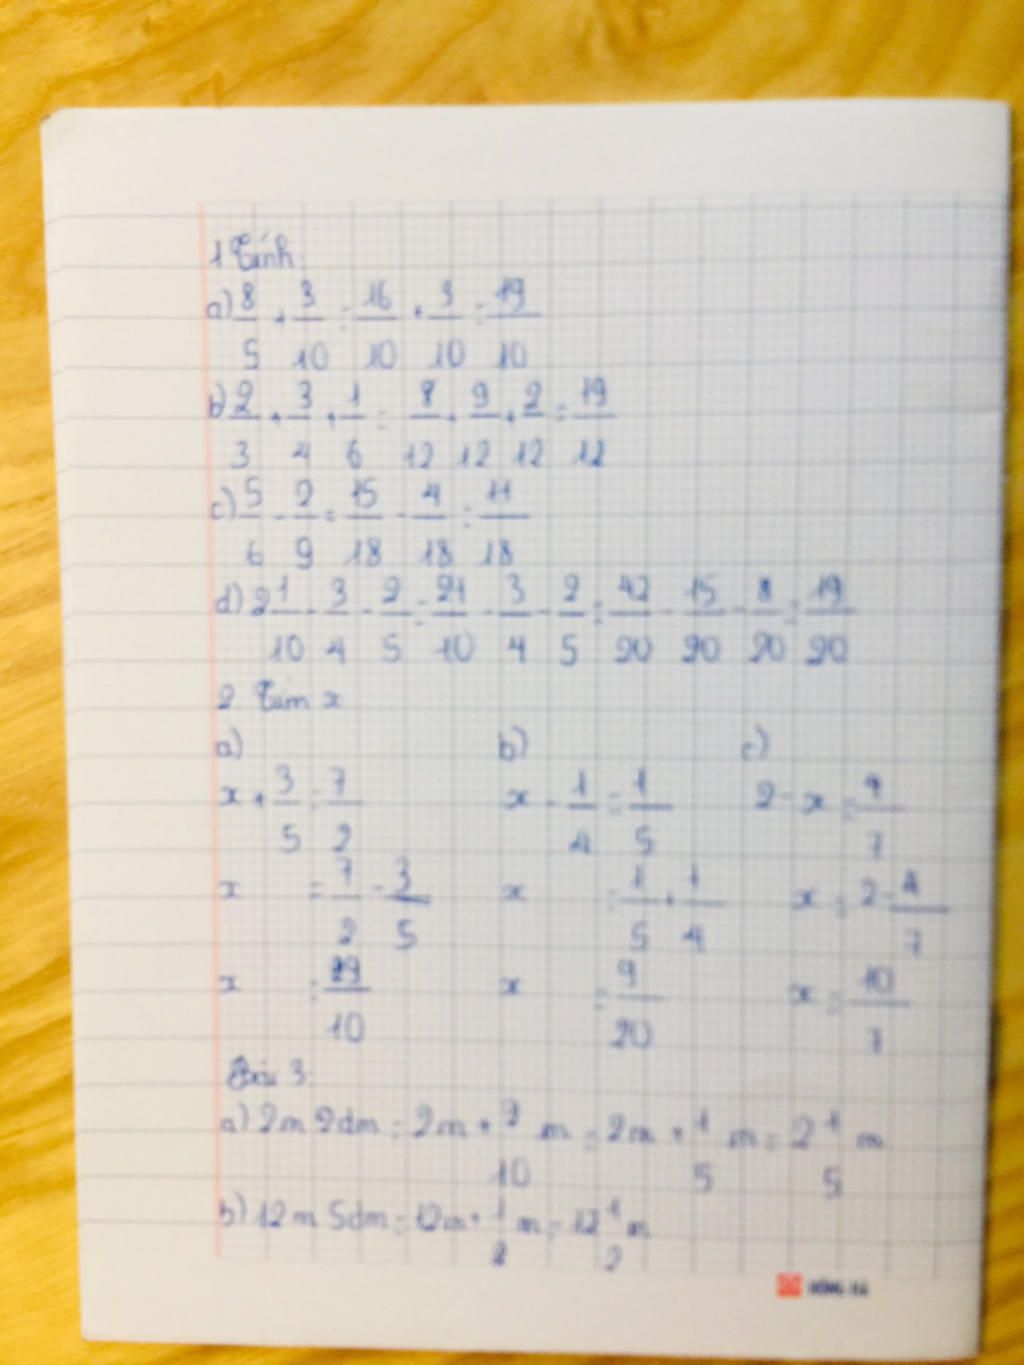 1 Tính:
a) 8/5 + 3/10 = 16/10 + 3/10 = 19/10
b) 2/3 + 3/4 + 1/6 = 8/12 + 9/12 + 2/12 = 19/12
c) 5/6 - 2/9 = 15/18 - 4/18 = 11/18
d) 2 1/10 - 3/4 - 2/5 = 21/10 - 3/4 - 2/5 = 42/20 - 15/20 - 8/20 = 19/20
2. Tìm x
a) b) c)
x + 3/5 = 7/2 x - 1/4 = 1/5 2 - x = 4/7
x = 7/2 - 3/5 x = 1/5 + 1/4 x = 2 - 4/7
x = 29/10 x = 9/20 x = 10/7
Bài 3:
a) 2m 2dm = 2m + 2/10 m = 2m + 1/5 m = 2 1/5 m
b) 12m 5dm = 12m + 1/2 m = 12 1/2 m
HỒNG HÀ